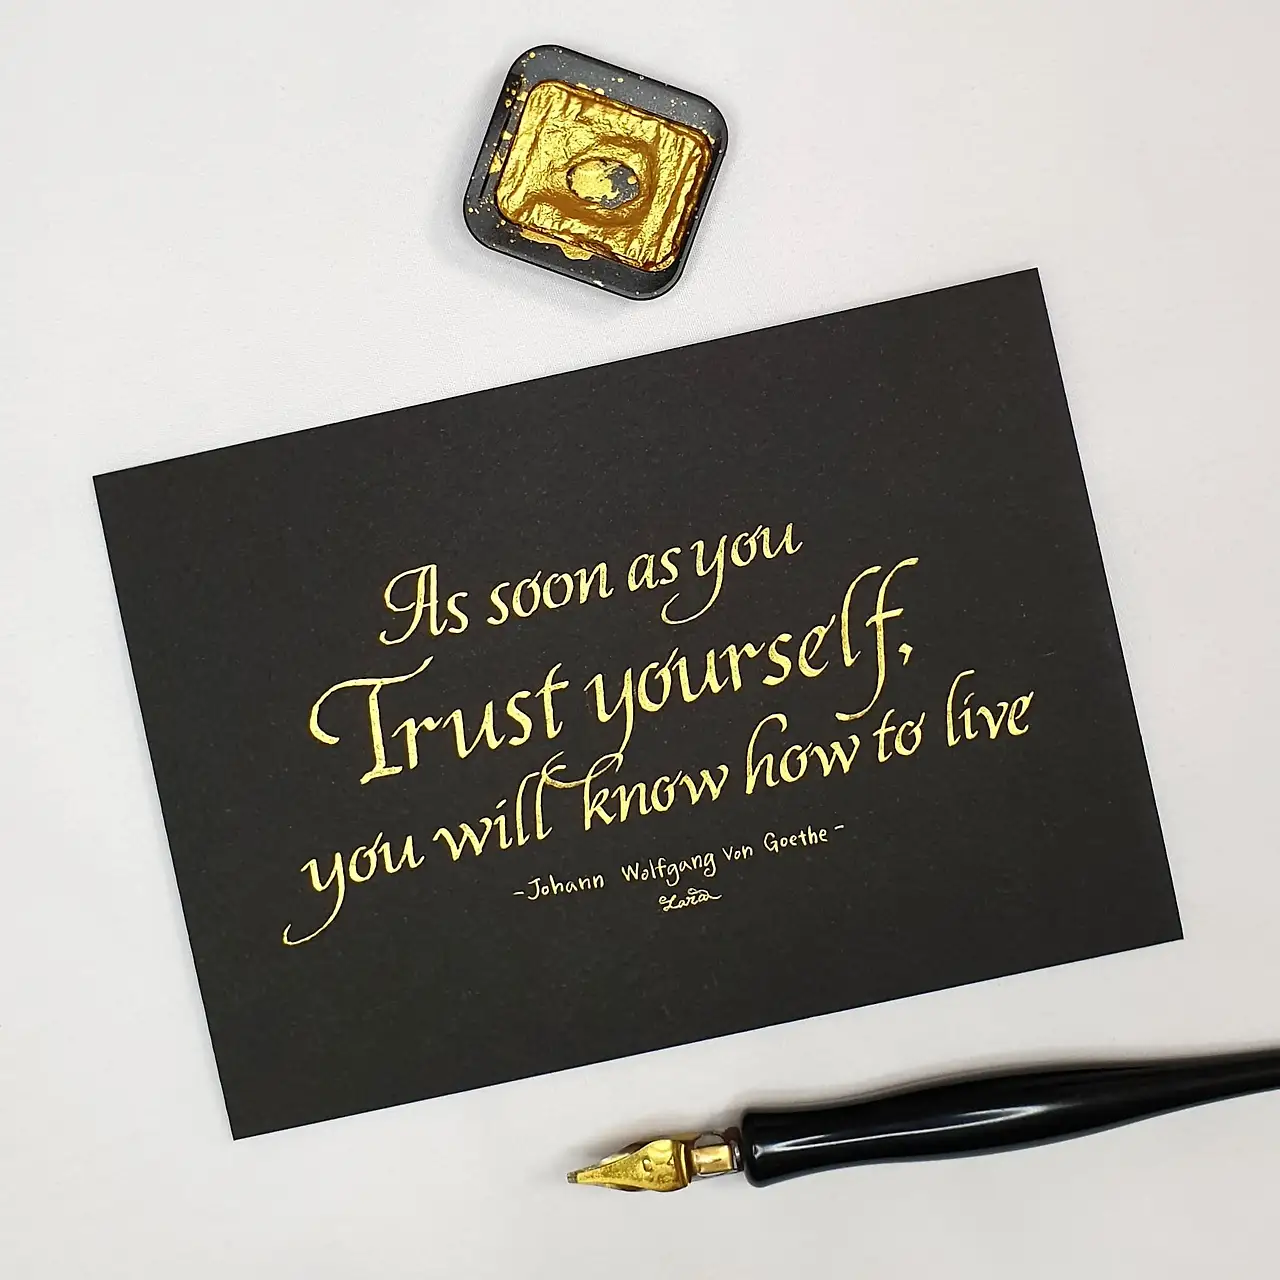 As soon as you
Trust yourself,
you will know how to live
-Johann Wolfgang Von Goethe-
Lara
C-4